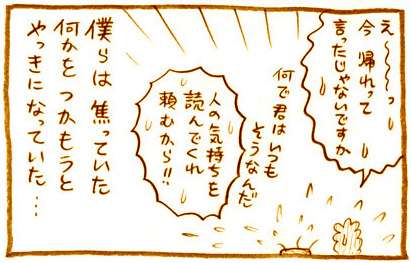 え〜〜〜っ
今 帰れって
言ったじゃないですか
何で君はいつも
そうなんだ
人の気持ちを
読んでくれ
頼むから!!
僕らは 焦っていた
何かを つかもうと
やっきになっていた…